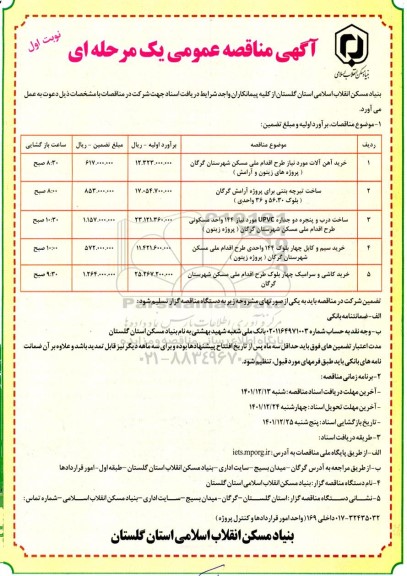 نوبت اول
آگهی مناقصه عمومی یک مرحله ای
بنیاد مسکن انقلاب اسلامی
بنیاد مسکن انقلاب اسلامی استان گلستان از کلیه پیمانکاران واجد شرایط دریافت اسناد جهت شرکت در مناقصات با مشخصات ذیل دعوت به عمل
می آورد.
۱-موضوع مناقصات، برآورد اولیه و مبلغ تضمین:
ردیف موضوع مناقصه برآورد اولیه - ریال مبلغ تضمین - ریال ساعت باز گشایی
۱ خرید آهن آلات مورد نیاز طرح اقدام ملی مسکن شهرستان گرگان ۱۲.۳۲۳.۰۰۰.۰۰۰ ۶۱۷.۰۰۰.۰۰۰ ۸:۳۰ صبح
( پروژه های زیتون و آرامش )
۲ ساخت تیرچه بتنی برای پروژه آرامش گرگان ۱۷.۰۵۴.۷۰۰.۰۰۰ ۸۵۳.۰۰۰.۰۰۰ ۸:۰۰ صبح
( بلوک ۵۶،۳۰ و ۳۶ واحدی )
۳ ساخت درب و پنجره دو جداره UPVC مورد نیاز ۱۴۴ واحد مسکونی ۲۳.۱۲۱.۳۶۰.۰۰۰ ۱.۱۵۷.۰۰۰.۰۰۰ ۱۰:۳۰ صبح
طرح اقدام ملی مسکن شهرستان گرگان ( پروژه زیتون )
۴ خرید سیم و کابل چهار بلوک ۱۴۴ واحدی طرح اقدام ملی مسکن ۱۱.۴۳۱.۶۰۰.۰۰۰ ۵۷۲.۰۰۰.۰۰۰ ۱۰:۰۰ صبح
شهرستان گرگان ( پروژه زیتون )
۵ خرید کاشی و سرامیک چهار بلوک طرح اقدام ملی مسکن شهرستان ۲۵.۲۶۷.۲۰۰.۰۰۰ ۱.۲۶۴.۰۰۰.۰۰۰ ۹:۳۰ صبح
گرگان
تضمین شرکت در مناقصه باید به یکی از صورتهای مشروحه زیر به دستگاه مناقصه گزار تسلیم شود:
الف - ضمانتنامه بانکی
ب - وجه نقد به حساب شماره ۰۲۰۱۱۶۴۹۷۱۰۰۳ بانک ملی شعبه شهید بهشتی به نام بنیاد مسکن استان گلستان
مدت اعتبار تضمین های فوق باید حداقل سه ماه پس از تاریخ افتتاح پیشنهادها بوده و برای سه ماهه دیگر نیز قابل تمدید باشد و علاوه بر آن ضمانت
نامه های بانکی باید طبق فرمهای مورد قبول، تنظیم شود.
۲-برنامه زمانی مناقصه:
- آخرین مهلت دریافت اسناد مناقصه: شنبه ۱۴۰۱/۱۲/۱۳
- آخرین مهلت تحویل اسناد: چهارشنبه ۱۴۰۱/۱۲/۲۴
- تاریخ بازگشایی اسناد: پنج شنبه ۱۴۰۱/۱۲/۲۵
۳-طریقه دریافت اسناد:
الف-از طریق پایگاه ملی مناقصات به آدرس: iets.mporg.ir
ب-از طریق مراجعه به آدرس گرگان -میدان بسیج -سایت اداری -بنیاد مسکن انقلاب استان گلستان -طبقه اول - امور قراردادها
۴-نام دستگاه مناقصه گزار: بنیاد مسکن انقلاب اسلامی استان گلستان
۵-نشانی دستگاه مناقصه گزار: استان گلستان-گرگان-میدان بسیج-سایت اداری-بنیاد مسکن انقلاب اسلامی-شماره تماس:
۰۱۷-۳۲۴۳۵۰۳۲ داخلی ۱۶۹ (واحد امور قراردادها و کنترل پروژه )
بنیاد مسکن انقلاب اسلامی استان گلستان